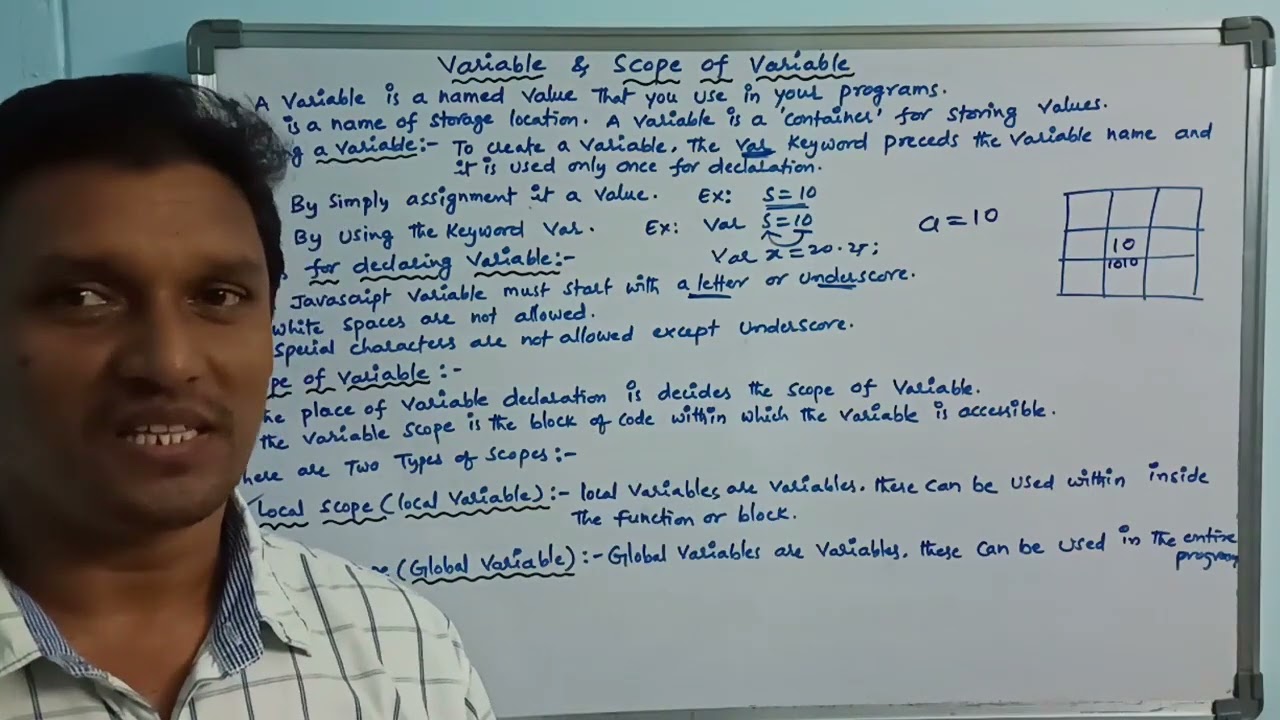 Variable & Scope of Variable
A Variable is a named value that you use in your programs.
is a name of storage location. A variable is a 'container' for storing values.
g a variable:- To create a variable, the var keyword preceds the variable name and
it is used only once for declaration.
By simply assignment it a value. Ex: S=10
By using the Keyword Var. Ex: Var S=10
Var x=20.25;
a=10
10
1010
for declaring Variable:-
Javascript variable must start with a letter or underscore.
white spaces are not allowed.
special characters are not allowed except underscore.
pe of variable :-
he place of variable declaration is decides the scope of Variable.
the variable scope is the block of code within which the variable is accessible.
here are Two Types of scopes:-
Local scope (local Variable) :- local variables are variables. these can be used within inside
the function or block.
(Global Variable) :- Global variables are variables. these can be used in the entire
program